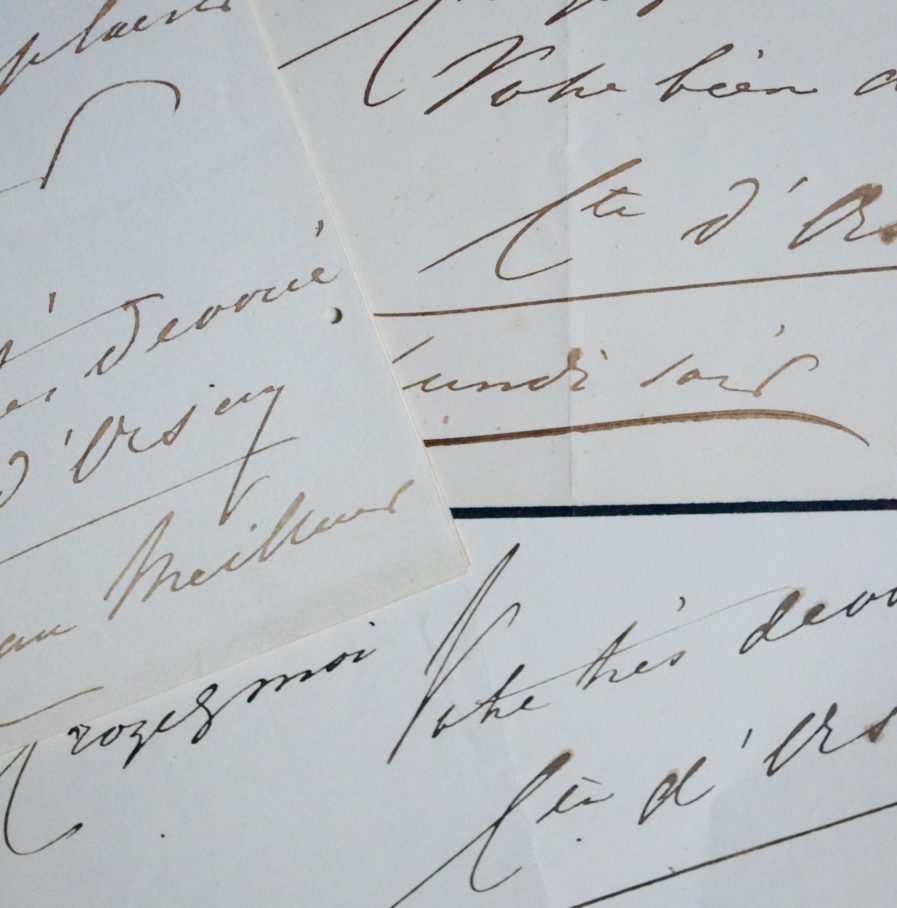 plaisir
très devoué
d'Orsay
au Meilleur
Votre bien
Cte d'Ors
Lundi soir
Crozez moi
Votre très devou
Cte d'Ors